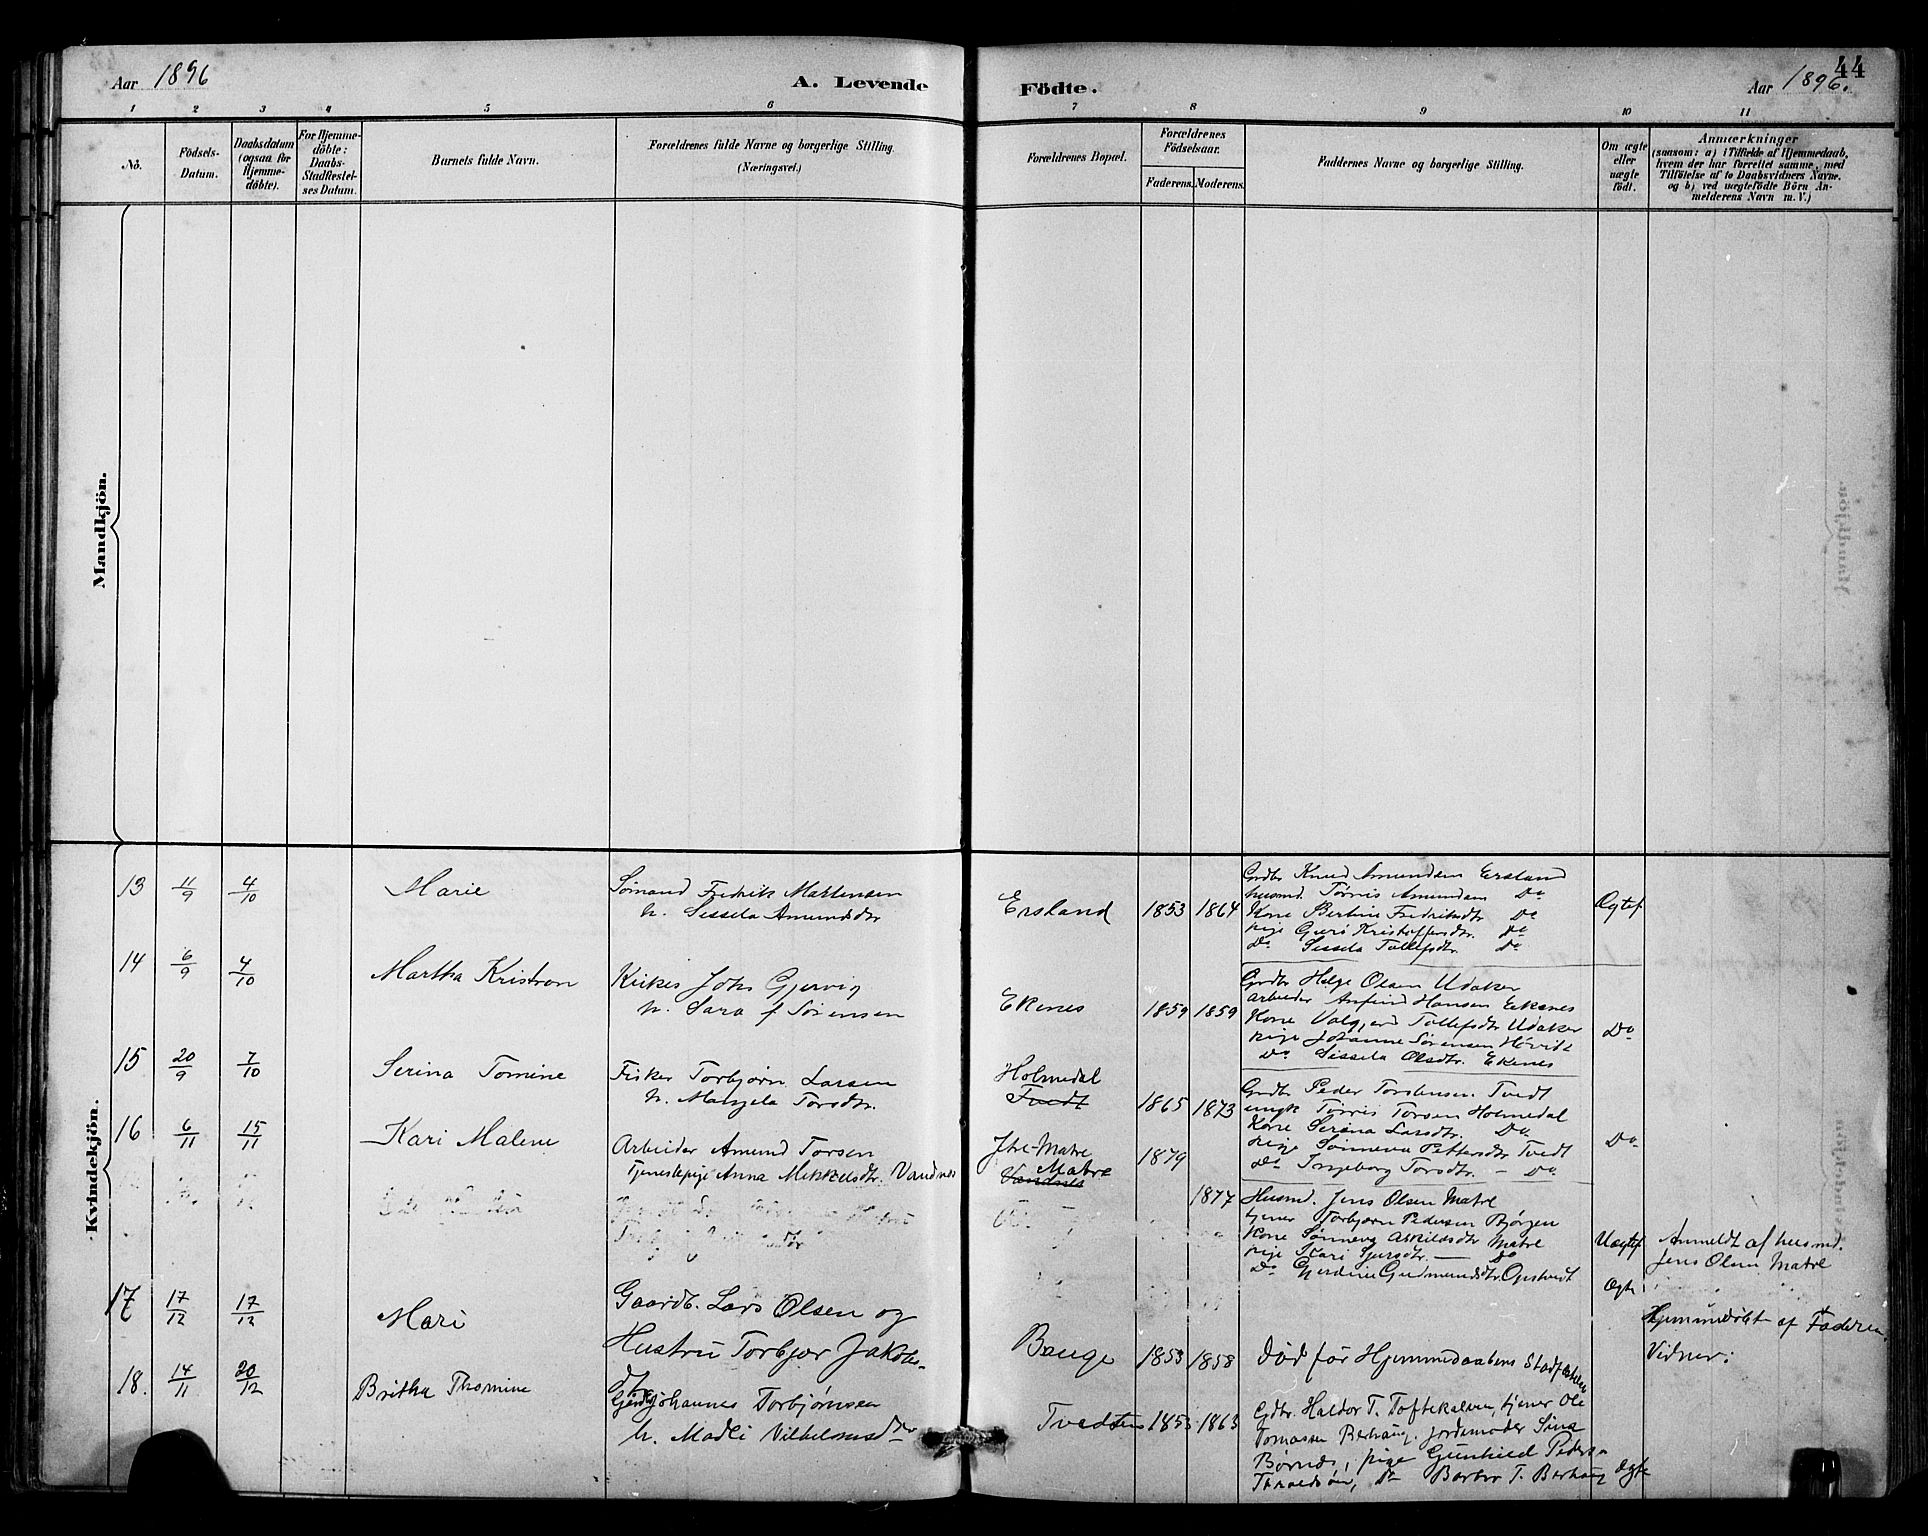 44
Aar 1896
A. Levende
Födte.
Aar 1896.
1 2 3 4 5 6 7 8 9 10 11
No.
Födsels-
Datum.
Daabsdatum
(ogsaa for
Hjemme-
döbte).
For Hjemme-
döbte:
Daabs-
Stadfæstel-
ses Datum.
Barnets fulde Navn.
Forældrenes fulde Navne og borgerlige Stilling
(Næringsvei.)
Forældrenes Bopæl.
Forældrenes
Födselsaar.
Faderens.
Moderens.
Faddernes Navne og borgerlige Stilling.
Om ægte
eller
uægte
födt.
Anmærkninger
(saasom: a) i Tilfælde af Hjemmedaab,
hvem der har forrettet samme, med
Tilföielse af to Daabsvidners Navne.
og b) ved uægtefödte Börn An-
melderens Navn m. V.)
Mandkjön.
Kvindekjön.
13
11/9
4/10
Marie
Sömand Fredrik Martensen
h. Sissela Amundsdtr
Ersland
1853
1864
Grdbr Knud Amundsen Ersland
husmd. Tørris Amundsen Do
Kone Bertine Fredriksdtr Do
pige Guro Kristoffersdtr. Do
Do Sissela Tollefsdtr. Do
Ægtef
14
6/9
4/10
Martha
Johs Gjervig
h. Sara f Sörensen
Ekenes
1859
1859
Grdbr Helge Olsen Udaker
arbeider Anfind Hansen Eekenes
Kone Valgjerd Tollefsdtr Udaker
pige Johanne Sørensen
Do Sissela Olsdtr. Ekenes
Do
15
20/9
7/10
Serina Tomine
Fisker Torbjørn Larsen
h. Mangela Torsdtr.
Holmedal
Tvedt
1865
1873
Grdbr Peder Torstensen Tvedt
ungk Tørris Torsen Holmedal
Kone Serina Larsdtr. Do
pige Sønneva Pettersdtr Tvedt
Do Ingeborg Torsdtr. — Do
Do
16
6/11
15/11
Kari Malene
Arbeider Amund Torsen
Tjenestepige Anna Mikkelsdtr. Vandnes
Ytre-Matre
Matre
Vandnes
1879
1877
Husmd. Jens Olsen Matre
tjener Torbjørn Pedersen Bjørgen
Kone Sønneva Askildsdtr Matre
pige Kari Sjursdtr. — Do
Do Gjerdine Gudmundsdtr. Opstvedt
Uægtef
Anmeldt af husmd.
Jens Olsen Matre
17
17/12
17/12
Mari
Gaardb. Lars Olsen og
Hustru Torbjør Jakobs-
dtr
Bauge
1853
1858
Død før Hjemmedaabens Stadfæstelse
Ægte
Hjemmedøbt af Faderen
Vidner:
18.
14/11
20/12
Britha Thomine
Johannes Torbjørnsen
h. Madli Vilhelmsdtr
1853
1863
Grdbr. Haldor T. Toftekalven, tjener Ole
Tomassen Berhaug. jordemoder Sina
Børnes, pige Gunhild Peders-
Do Barbro T. Berhaug
Ægte